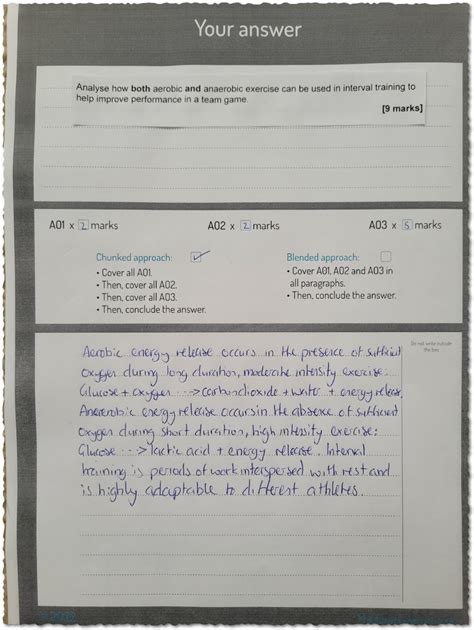 Your answer
Analyse how both aerobic and anaerobic exercise can be used in interval training to
help improve performance in a team game.
[9 marks]
A01 x 2 marks A02 x 2 marks A03 x 5 marks
Chunked approach: ✓ Blended approach:
• Cover all A01. • Cover A01, A02 and A03 in
• Then, cover all A02. all paragraphs.
• Then, cover all A03. • Then, conclude the answer.
• Then, conclude the answer.
Do not write outside
the box
Aerobic energy release occurs in the presence of sufficient
oxygen during long duration, moderate intensity exercise:
Glucose + oxygen ···> carbondioxide + water + energy release.
Anaerobic energy release occurs in the absence of sufficient
oxygen during short duration, high intensity exercise:
Glucose ···> lactic acid + energy release. Interval
training is periods of work interspersed with rest and
is highly adaptable to different athletes.